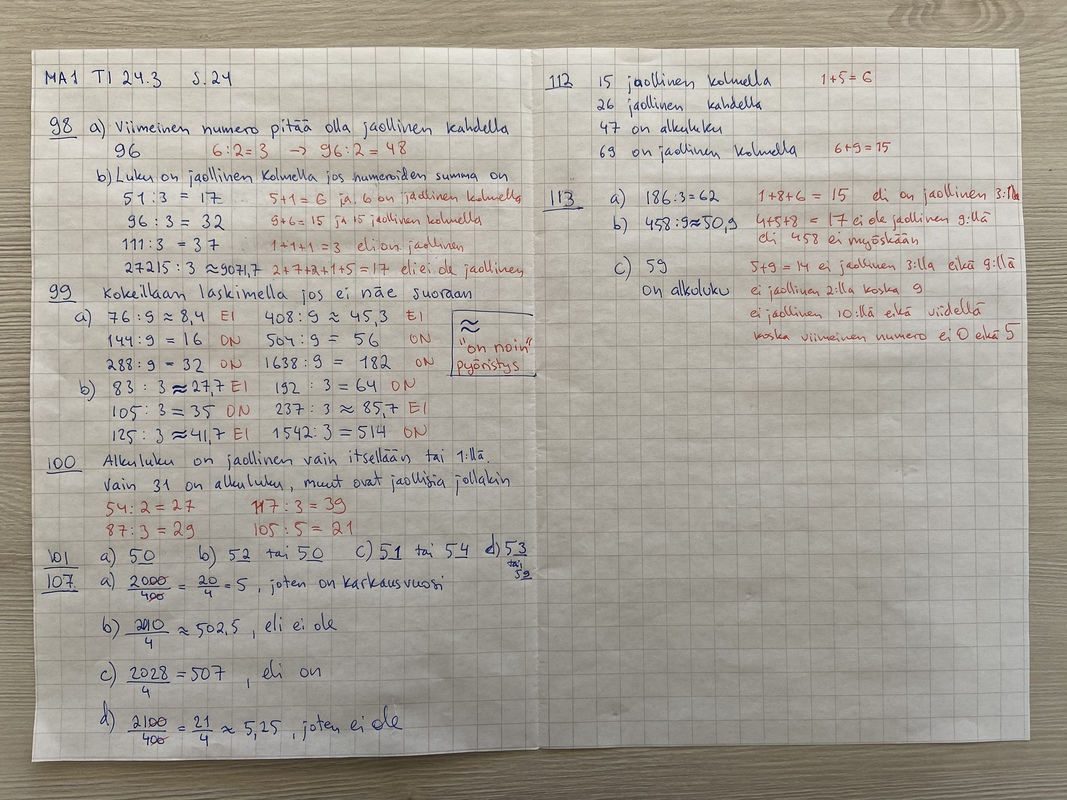 MA1 TI 24.3 S.24
98 a) Viimeinen numero pitää olla jaollinen kahdella
96 6:2=3 → 96:2=48
b) Luku on jaollinen kolmella jos numeroiden summa on
51:3 = 17 5+1 = 6 ja 6 on jaollinen kolmella
96:3 = 32 9+6=15 ja 15 jaollinen kolmella
111:3 = 37 1+1+1=3 eli on jaollinen
27215:3 ≈9071,7 2+7+2+1+5=17 eli ei ole jaollinen
99 Kokeillaan laskimella jos ei näe suoraan
a) 76:9 ≈ 8,4 EI 408:9 ≈ 45,3 EI
144:9 = 16 ON 504:9 = 56 ON
288:9 = 32 ON 1638:9 = 182 ON
≈
"on noin"
pyöristys
b) 83:3 ≈27,7 EI 192:3 = 64 ON
105:3 = 35 ON 237:3 ≈ 85,7 EI
125:3 ≈41,7 EI 1542:3 = 514 ON
100 Alkuluku on jaollinen vain itsellään tai 1:llä.
Vain 31 on alkuluku, muut ovat jaollisia jollakin
54:2=27 117:3=39
87:3=29 105:5=21
101 a) 50 b) 52 tai 50 c) 51 tai 54 d) 53
tai
59
107 a) 2000/400 = 20/4 = 5, joten on karkausvuosi
b) 2010/4 ≈ 502,5, eli ei ole
c) 2028/4 = 507, eli on
d) 2100/400 = 21/4 ≈ 5,25, joten ei ole
112 15 jaollinen kolmella 1+5=6
26 jaollinen kahdella
47 on alkuluku
69 on jaollinen kolmella 6+9=15
113 a) 186:3=62 1+8+6 = 15 eli on jaollinen 3:lla
b) 458:9≈50,9 4+5+8 = 17 ei ole jaollinen 9:llä
eli 458 ei myöskään
c) 59 5+9=14 ei jaollinen 3:lla eikä 9:llä
on alkuluku ei jaollinen 2:lla koska 9
ei jaollinen 10:llä eikä viidellä
koska viimeinen numero ei 0 eikä 5